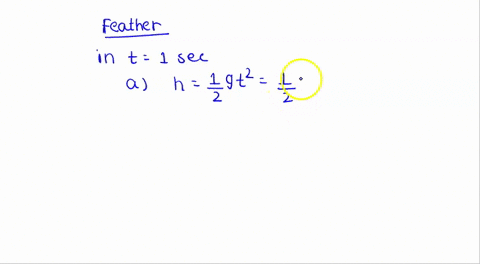 Feather
in t = 1 sec
a) h = 1/2 gt² = 1/2 ·